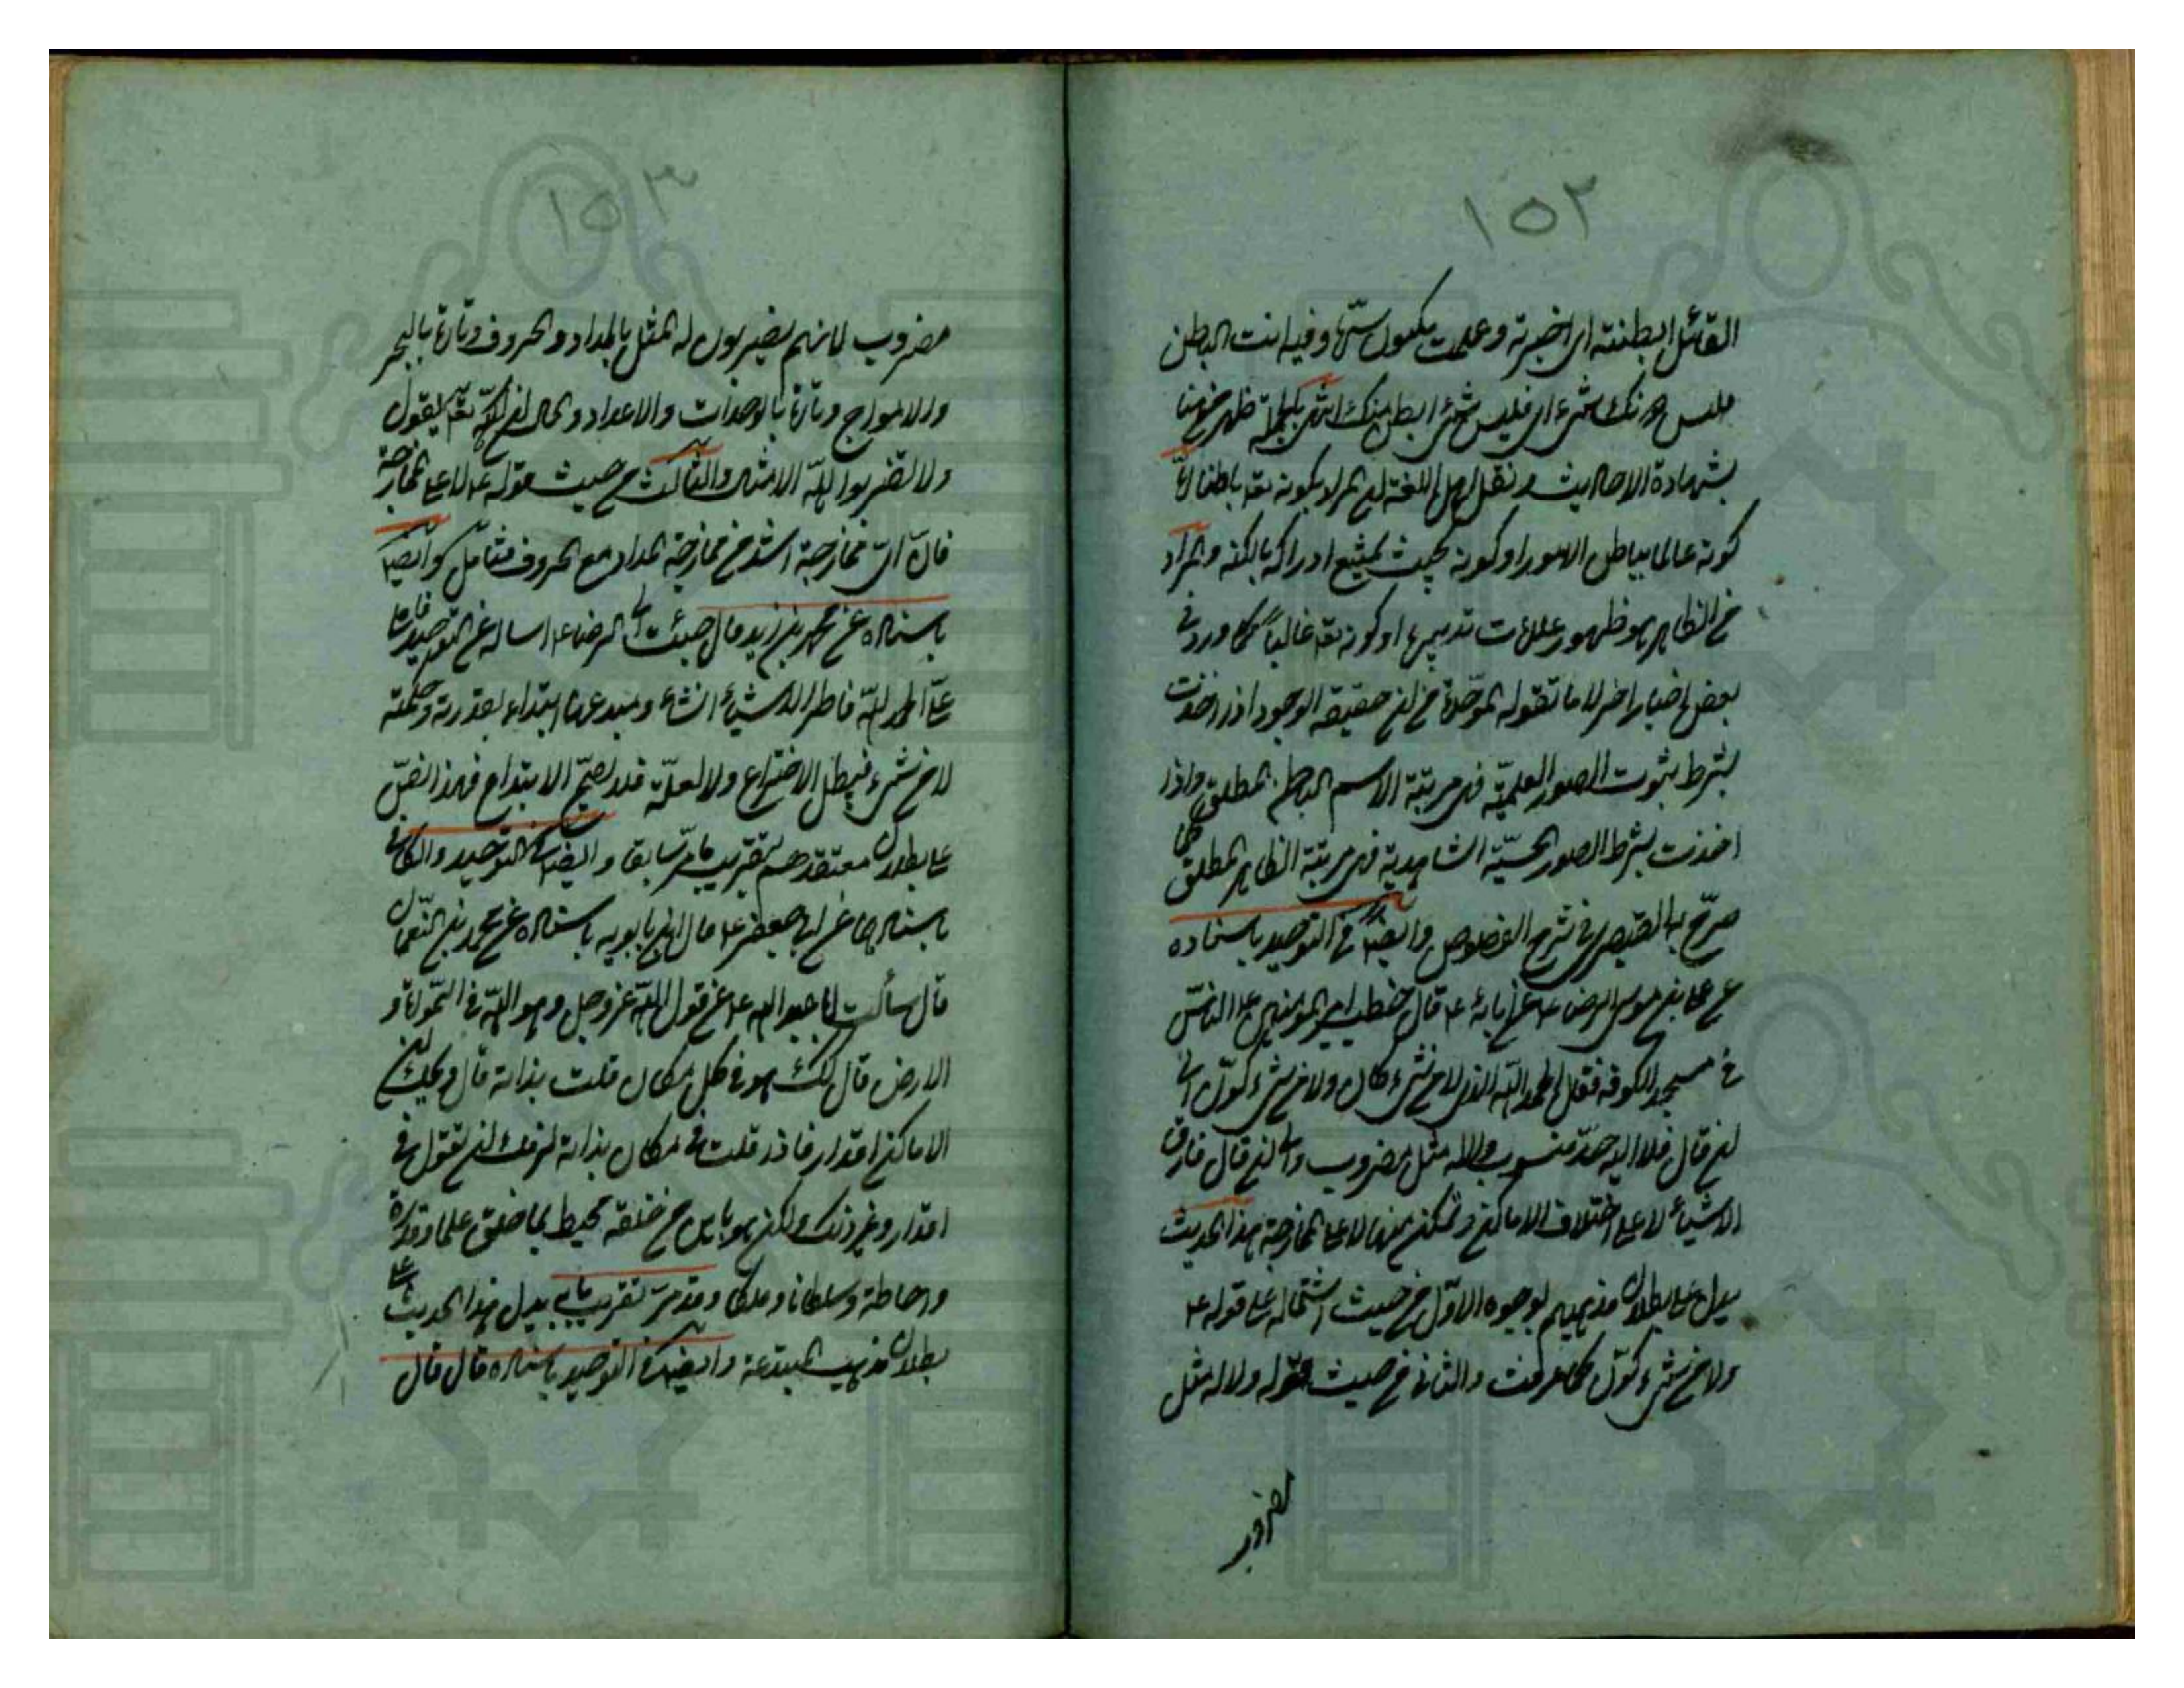 ١٥٢
القائل ابطنته ای اخبرته وعلمت مكنون سرّه وفیه انت الباطن
فلیس دونك شیء ای فلیس شیء ابطن منك انتهی بالجملة ظهر من هنا
بشهادة الاحادیث ونقل اهل اللغة ان المراد بكونه تعه باطنا امّا
كونه عالما بباطن الامور او كونه بحیث یمتنع ادراكه بالكنه والمراد
من الظاهر هو ظهور علامات تدبیره او كونه تعه غالباً كما ورد فی
بعض اخبار اخر لا ما تقوله الموحّدة من ان حقیقة الوجود اذا اخذت
بشرط ثبوت الصور العلمیّة فهی مرتبة الاسم الباطن المطلق واذا
اخذت بشرط الصور الحسیّة الشاهدیة فهی مرتبة الظاهر المطلق كما
صرّح به القیصری فی شرح الفصوص وایضا فی التوحید باسناده
عن علی بن موسی الرضا ع عن ابائه ع قال خطب امیر المؤمنین ع الناس
فی مسجد الكوفة فقال الحمد لله الذی لا من شیء كان ولا من شیء كوّن الی
ان قال فلا الیه حدّ منسوب ولا له مثل مضروب والی ان قال فارق
الاشیاء لا علی اختلاف الاماكن وتمكن منها لا علی الممازجة هذا الحدیث
یدل علی بطلان مذهبهم بوجوه الاوّل من حیث اشتماله علی قوله ع
ولا من شیء كوّن كما عرفت والثانی من حیث قوله ولا له مثل
مضروب
١٥٣
مضروب لانهم یضربون له المثل بالمداد والحروف وتارة بالبحر
والامواج وتارة بالوحدات والاعداد والحال ان الله تعه یقول
ولا تضربوا لله الامثال والثالث من حیث قوله ع لا علی الممازجة
فانّ ایّ ممازجة اشد من ممازجة المداد مع الحروف فتأمل وایضا
باسناده عن محمد بن زید قال جئت الی الرضا ع اسأله عن التوحید فاملی
علیّ الحمد لله فاطر الاشیاء انشاء ومبدعها ابتداء بقدرته وحكمته
لا من شیء فیبطل الاختراع ولا لعلّة فلا یصحّ الابتداع فهذا نصّ
علی بطلان معتقدهم بتقریب ما مرّ سابقا وایضا فی التوحید والكافی
باسنادهما عن ابی جعفر ع قال ابن بابویه باسناده عن محمد بن النعمان
قال سألت ابا عبد الله ع عن قول الله عز وجل وهو الله فی السّموات و
الارض قال كذلك هو فی كل مكان قلت بذاته قال ویحك ان
الاماكن اقدار فاذا قلت فی مكان بذاته لزمك ان تقول فی
اقدار وغیر ذلك ولكن هو باین من خلقه محیط بما خلق علما وقدرة
واحاطة وسلطانا وملكا وقد مرّ تقریب ما یدل هذا الحدیث علی
بطلان مذهب المبتدعة وایضا فی التوحید باسناده قال قال